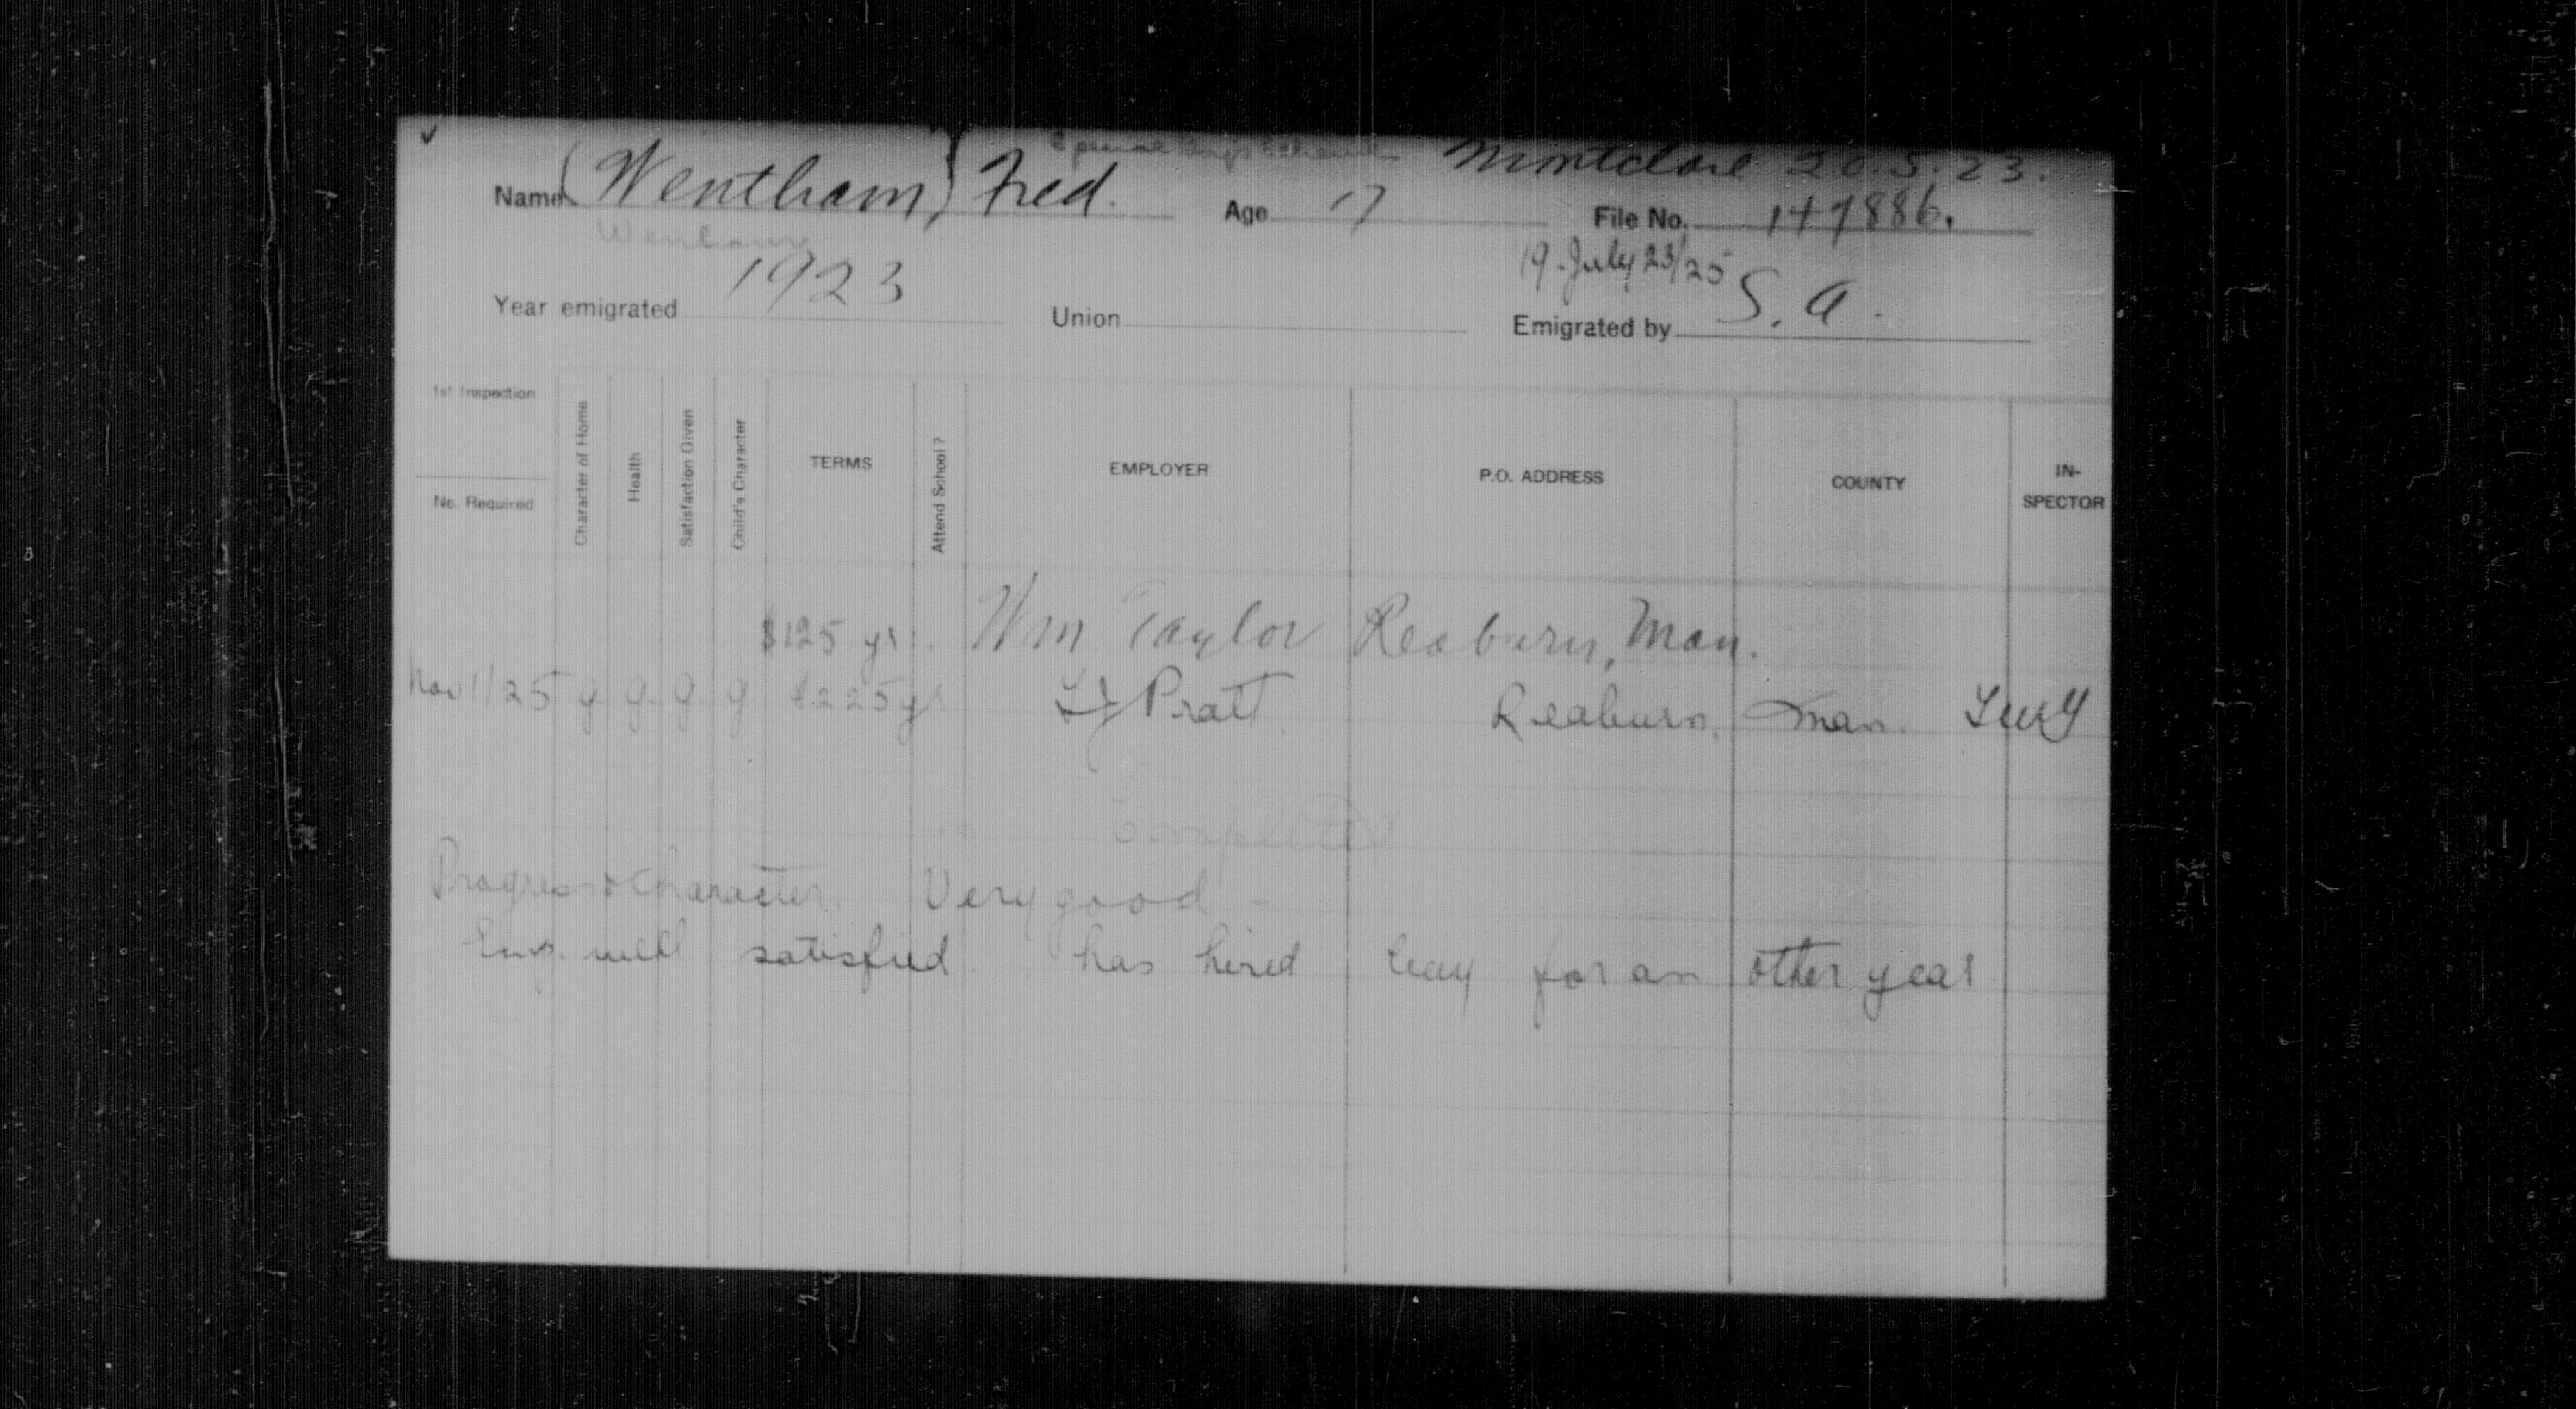 ✓
Special Boys Scheme Montclare 20.5.23.
Name (Wentham) Fred. Age 17 File No. 147886.
Wenham
19. July 23/25
Year emigrated 1923 Union Emigrated by S. A.
1st Inspection
No. Required
Character of Home
Health
Satisfaction Given
Child's Character
TERMS
Attend School?
EMPLOYER
P.O. ADDRESS
COUNTY
IN-
SPECTOR
$125 yr. Wm Taylor Reaburn, Man.
Nov 1/25 g. g. g. g $225 yr Pratt. Reaburn, Man.
Completed
Progress & Character. Very good -
Emp. well satisfied. has hired boy for an other year